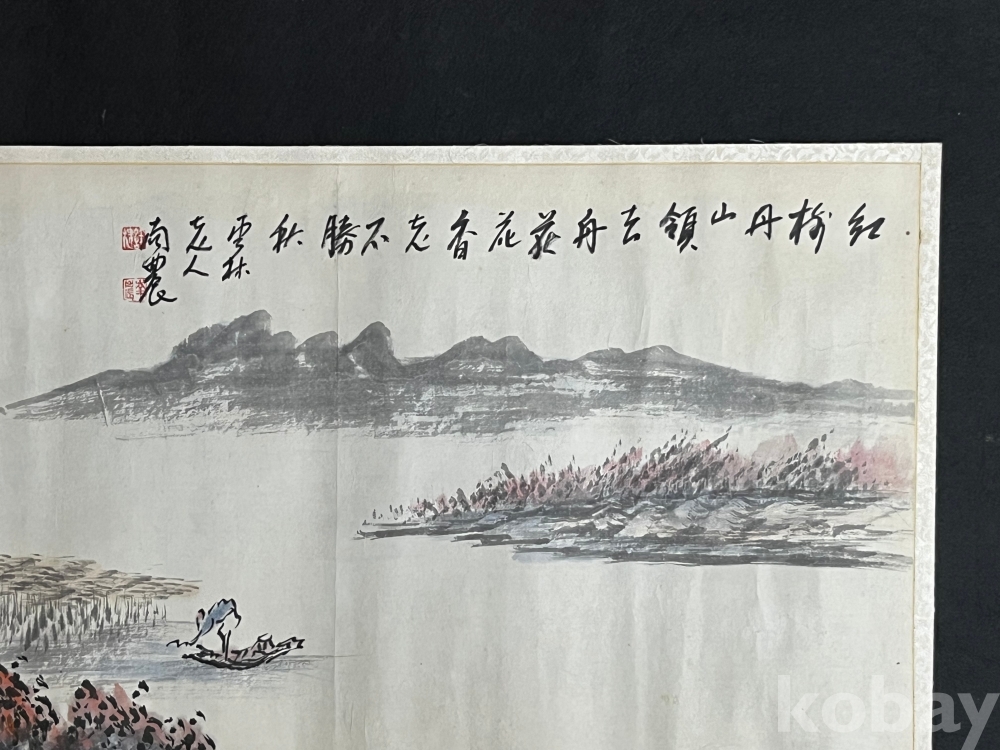 紅樹丹山領去舟花香老不勝秋
雲林
老人
南農
kobay